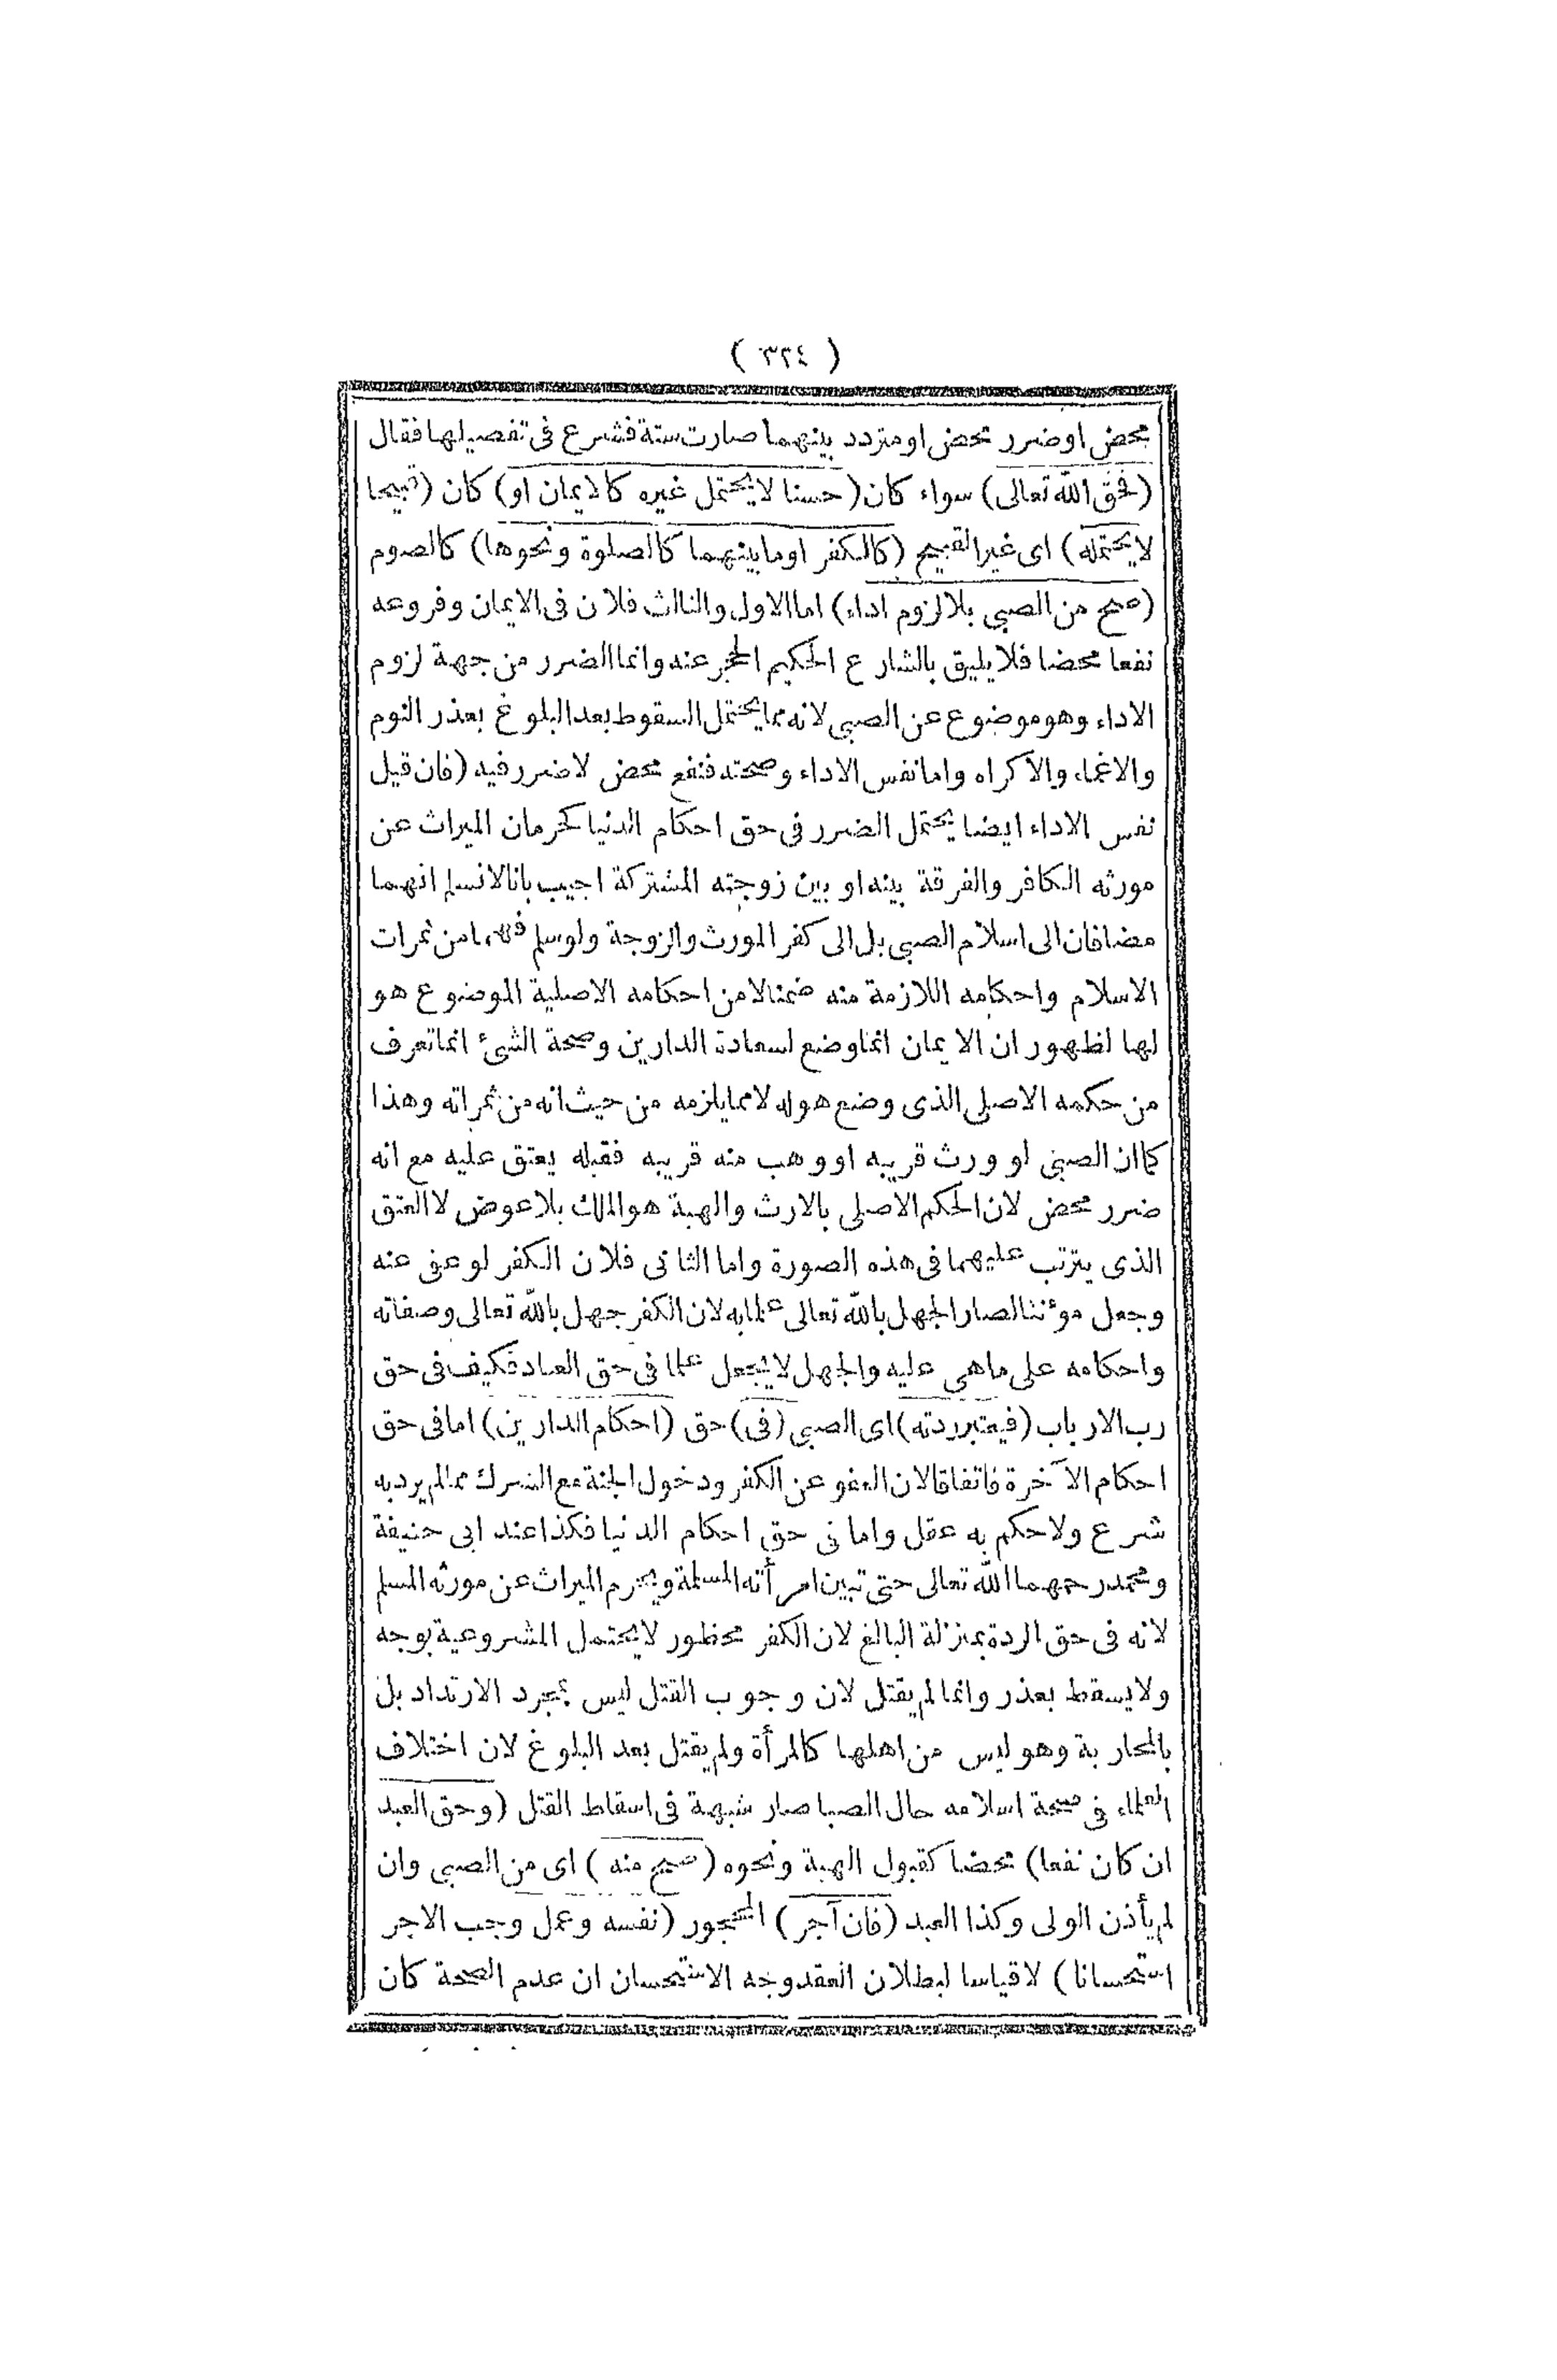 ( ٣٢٤ )
محض او ضرر محض او متردد بينهما صارت ستة فشرع فى تفصيلها فقال
(فحق الله تعالى) سواء كان (حسنا لا يحتمل غيره كالايمان او) كان (قبيحا
لا يحتمله) اى غير القبيح (كالكفر او ما بينهما كالصلوة ونحوها) كالصوم
(صح من الصبى بلا لزوم اداء) اما الاول والثالث فلان فى الايمان وفروعه
نفعا محضا فلا يليق بالشارع الحكيم الحجر عنه وانما الضرر من جهة لزوم
الاداء وهو موضوع عن الصبى لانه مما يحتمل السقوط بعد البلوغ بعذر النوم
والاغماء والاكراه واما نفس الاداء وصحته فنفع محض لا ضرر فيه (فان قيل
نفس الاداء ايضا يحتمل الضرر فى حق احكام الدنيا كحرمان الميراث عن
مورثه الكافر والفرقة بينه او بين زوجته المشتركة اجيب بانا لا نسلم انهما
مضافان الى اسلام الصبى بل الى كفر المورث والزوجة ولو سلم فهما من ثمرات
الاسلام واحكامه اللازمة منه ضمنا لا من احكامه الاصلية الموضوع هو
لها لظهور ان الايمان انما وضع لسعادة الدارين وصحة الشئ انما تعرف
من حكمه الاصلى الذى وضع هو له لا مما يلزمه من حيث انه من ثمراته وهذا
كما ان الصبى لو ورث قريبه او وهب منه قريبه فقبله يعتق عليه مع انه
ضرر محض لان الحكم الاصلى بالارث والهبة هو الملك بلا عوض لا العتق
الذى يترتب عليهما فى هذه الصورة واما الثانى فلان الكفر لو عفى عنه
وجعل مؤمنا لصار الجهل بالله تعالى علما به لان الكفر جهل بالله تعالى وصفاته
واحكامه على ما هى عليه والجهل لا يجعل علما فى حق العباد فكيف فى حق
رب الارباب (فيعتبر ردته) اى الصبى (فى) حق (احكام الدارين) اما فى حق
احكام الآخرة فاتفاقا لان العفو عن الكفر ودخول الجنة مع الشرك مما لم يرد به
شرع ولا حكم به عقل واما فى حق احكام الدنيا فكذا عند ابى حنيفة
ومحمد رحمهما الله تعالى حتى تبين امرأته المسلمة ويحرم الميراث عن مورثه المسلم
لانه فى حق الردة بمنزلة البالغ لان الكفر محظور لا يحتمل المشروعية بوجه
ولا يسقط بعذر وانما لم يقتل لان وجوب القتل ليس بمجرد الارتداد بل
بالمحاربة وهو ليس من اهلها كالمرأة ولم يقتل بعد البلوغ لان اختلاف
العلماء فى صحة اسلامه حال الصبا صار شبهة فى اسقاط القتل (وحق العبد
ان كان نفعا) محضا كقبول الهبة ونحوه (صح منه) اى من الصبى وان
لم يأذن الولى وكذا العبد (فان آجر) المحجور (نفسه وعمل وجب الاجر
استحسانا) لا قياسا لبطلان العقد وجه الاستحسان ان عدم الصحة كان